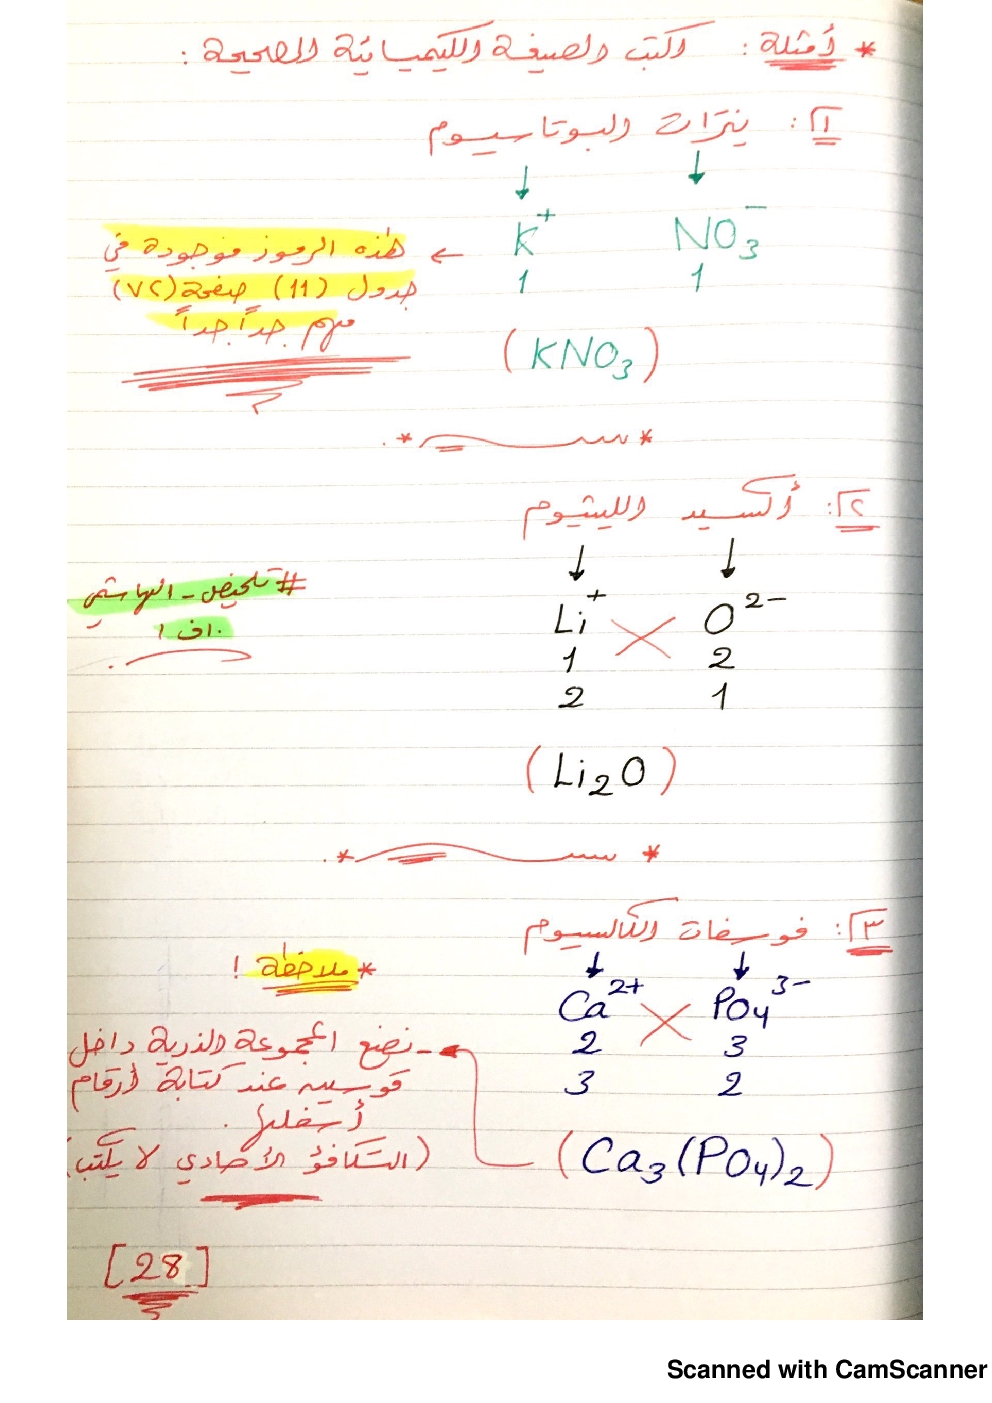 * أمثلة : اكتب الصيغة الكيميائية الصحيحة :
١ : نترات البوتاسيوم
K⁺ NO₃⁻
1 1
← هذه الرموز موجودة في
جدول (11) صفحة (٧٢)
مهم جداً جداً
(KNO₃)
٢ : أكسيد الليثيوم
Li⁺ O²⁻
1 2
2 1
# تلخيص - الهاشمي
(Li₂O)
٣ : فوسفات الكالسيوم
Ca²⁺ PO₄³⁻
2 3
3 2
* ملاحظة !
- نضع المجموعة الذرية داخل
قوسين عند كتابة أرقام
أسفلها .
(التكافؤ الأحادي لا يكتب)
(Ca₃(PO₄)₂)
[28]
Scanned with CamScanner